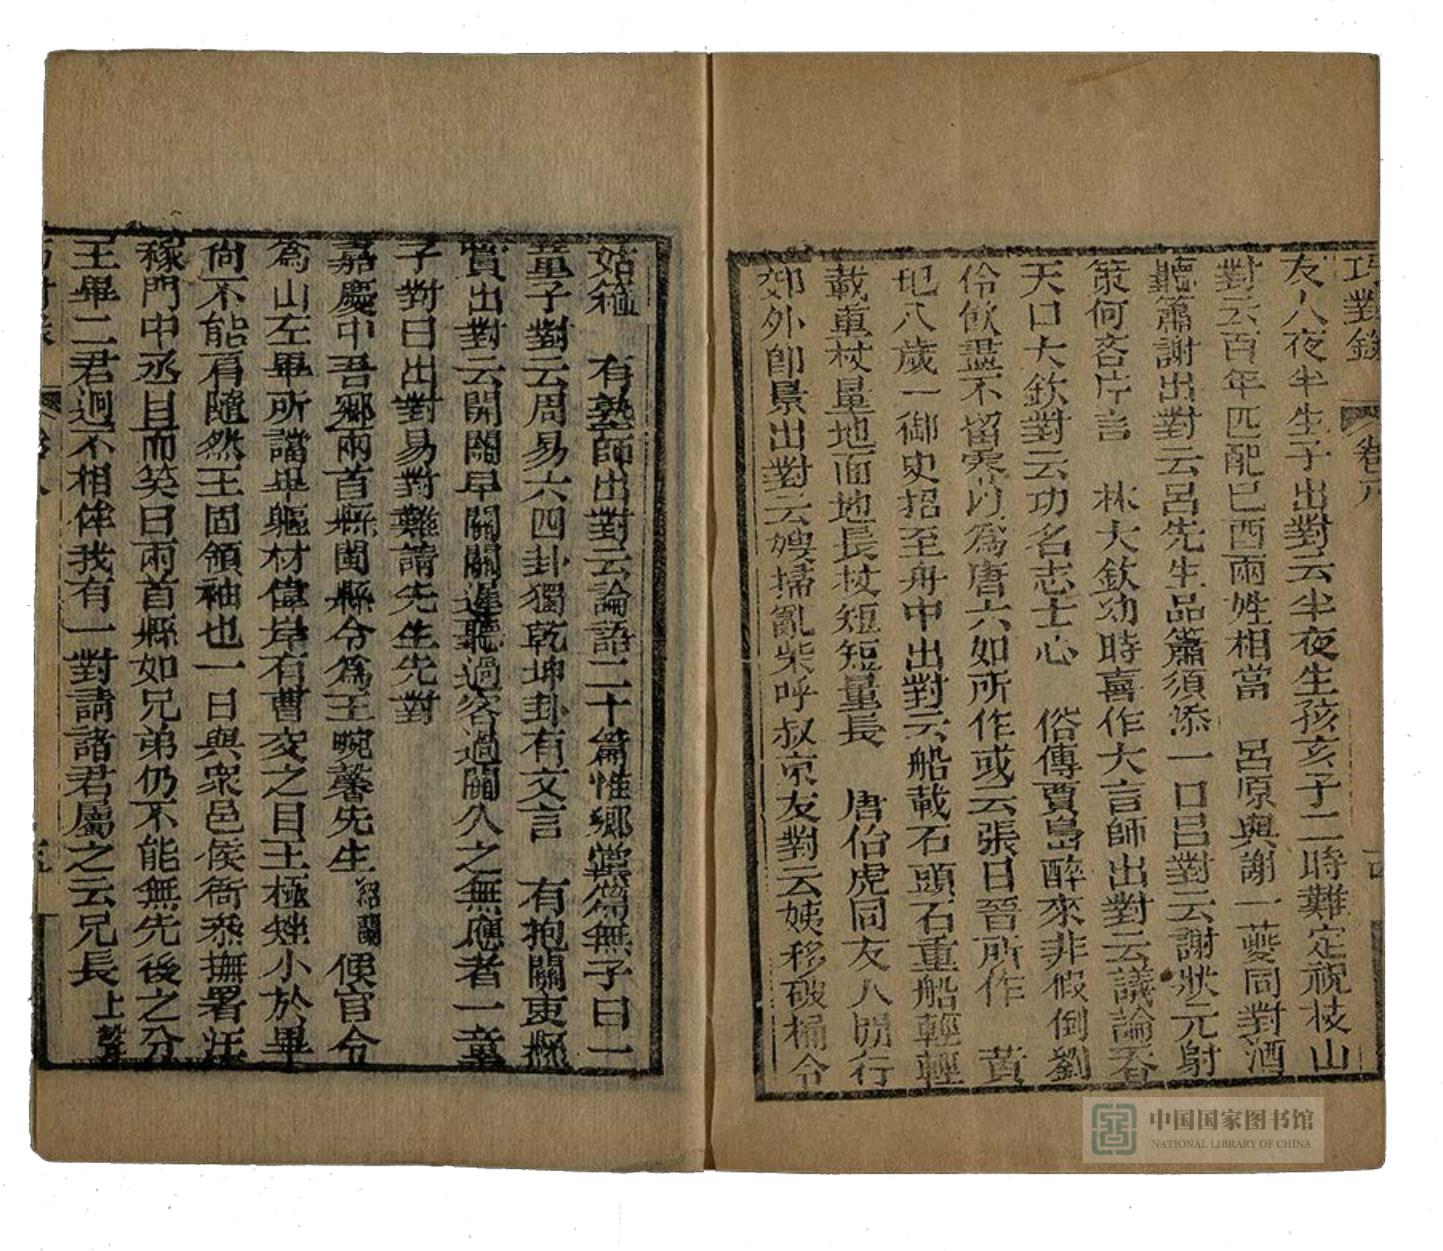 巧對錄 卷八
友人夜半生子出對云半夜生孩亥子二時難定祝枝山
對云百年匹配巳酉兩姓相當 呂原與謝一夔同對酒
聽簫謝出對云呂先生品簫須添一口呂對云謝狀元射
策何吝片言 林大欽幼時喜作大言師出對云議論吞
天口大欽對云功名志士心 俗傳賈島醉來非假倒劉
伶飲盡不留零以為唐六如所作或云張日晉所作 黃
圯八歲一御史招至舟中出對云船載石頭石重船輕輕
載重杖量地面地長杖短短量長 唐伯虎同友人閒行
郊外即景出對云嫂掃亂柴呼叔束友對云姨移破桶令
姑箍 有塾師出對云論語二十篇惟鄉黨篇無子曰一
童子對云周易六四卦獨乾坤卦有文言 有抱關吏極
賞出對云開關早關關遲聽過客過關久之無應者一童
子對曰出對易對難請先生先對
嘉慶中吾鄉兩首縣閩縣令為王畹馨先生紹蘭 侯官令
為山左畢所讜畢軀材偉岸有曹交之目王極矬小於畢
尚不能肩隨然王固領袖也一日與眾邑侯衙叅撫署汪
稼門中丞且而笑曰兩首縣如兄弟仍不能無先後之分
王畢二君迥不相侔我有一對請諸君屬之云兄長上聲
中国国家图书馆
NATIONAL LIBRARY OF CHINA